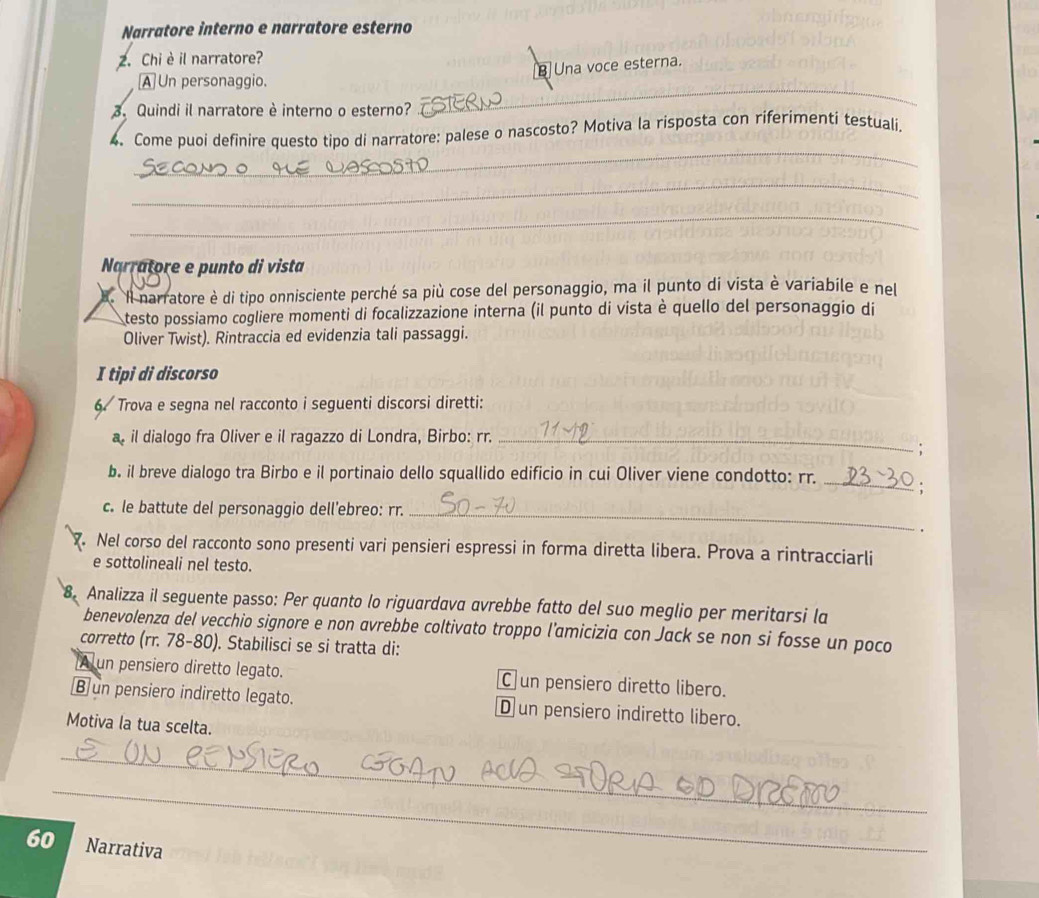 Narratore interno e narratore esterno
2. Chi è il narratore?
A Un personaggio.
B Una voce esterna.
3. Quindi il narratore è interno o esterno? ESTERNO
4. Come puoi definire questo tipo di narratore: palese o nascosto? Motiva la risposta con riferimenti testuali.
SECONDO ME NASCOSTO
Narratore e punto di vista
NO
Il narratore è di tipo onnisciente perché sa più cose del personaggio, ma il punto di vista è variabile e nel
testo possiamo cogliere momenti di focalizzazione interna (il punto di vista è quello del personaggio di
Oliver Twist). Rintraccia ed evidenzia tali passaggi.
I tipi di discorso
6. Trova e segna nel racconto i seguenti discorsi diretti:
a. il dialogo fra Oliver e il ragazzo di Londra, Birbo: rr. 11-12 ;
b. il breve dialogo tra Birbo e il portinaio dello squallido edificio in cui Oliver viene condotto: rr. 23-30 ;
c. le battute del personaggio dell'ebreo: rr. 50-70 .
7. Nel corso del racconto sono presenti vari pensieri espressi in forma diretta libera. Prova a rintracciarli
e sottolineali nel testo.
8. Analizza il seguente passo: Per quanto lo riguardava avrebbe fatto del suo meglio per meritarsi la
benevolenza del vecchio signore e non avrebbe coltivato troppo l'amicizia con Jack se non si fosse un poco
corretto (rr. 78-80). Stabilisci se si tratta di:
A un pensiero diretto legato.
B un pensiero indiretto legato.
C un pensiero diretto libero.
D un pensiero indiretto libero.
Motiva la tua scelta.
È UN PENSIERO LEGATO ALLA STORIA ED DIRETTO
60 Narrativa